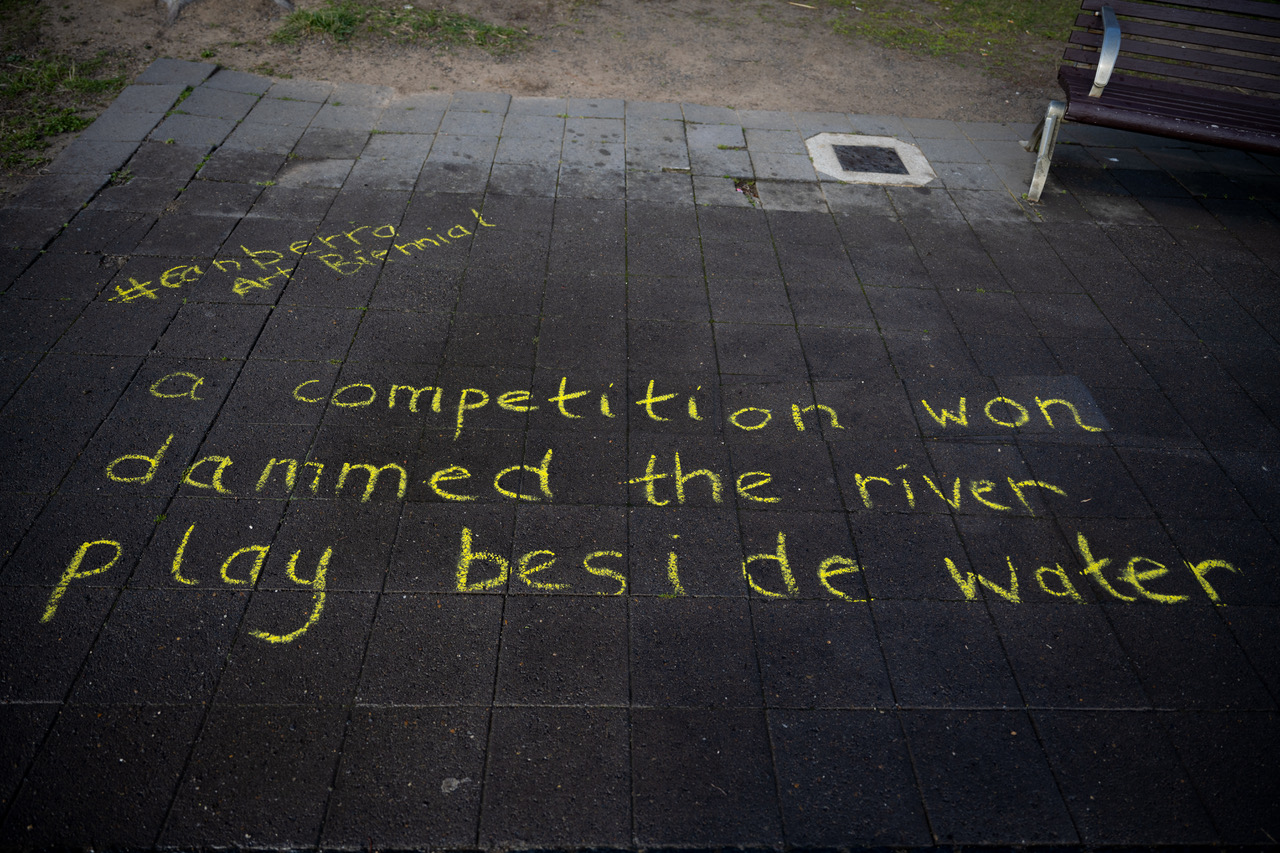 #Canberra
Art Biennial
a competition won
dammed the river
play beside water